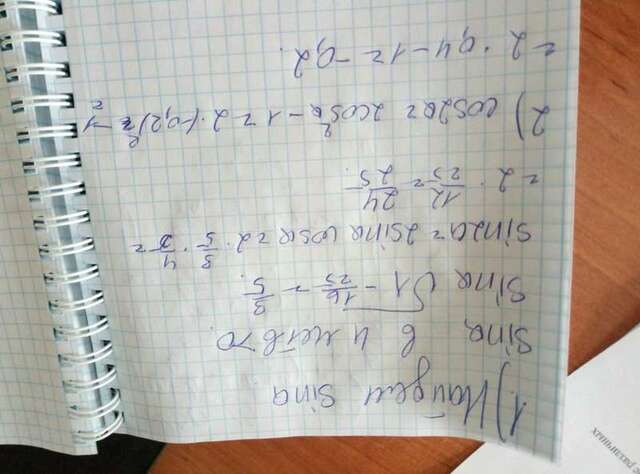 1) Найдем sina
sina в и четв >0.
sina √1 - 16/25 = 3/5
sin2a = 2sina cosa = 2 · 3/5 · 4/5 =
= 2 · 12/25 = 24/25.
2) cos2a = 2cos²a - 1 = 2 · (-0,2)² - 1 =
= 2 · 0,4 - 1 = -0,2.